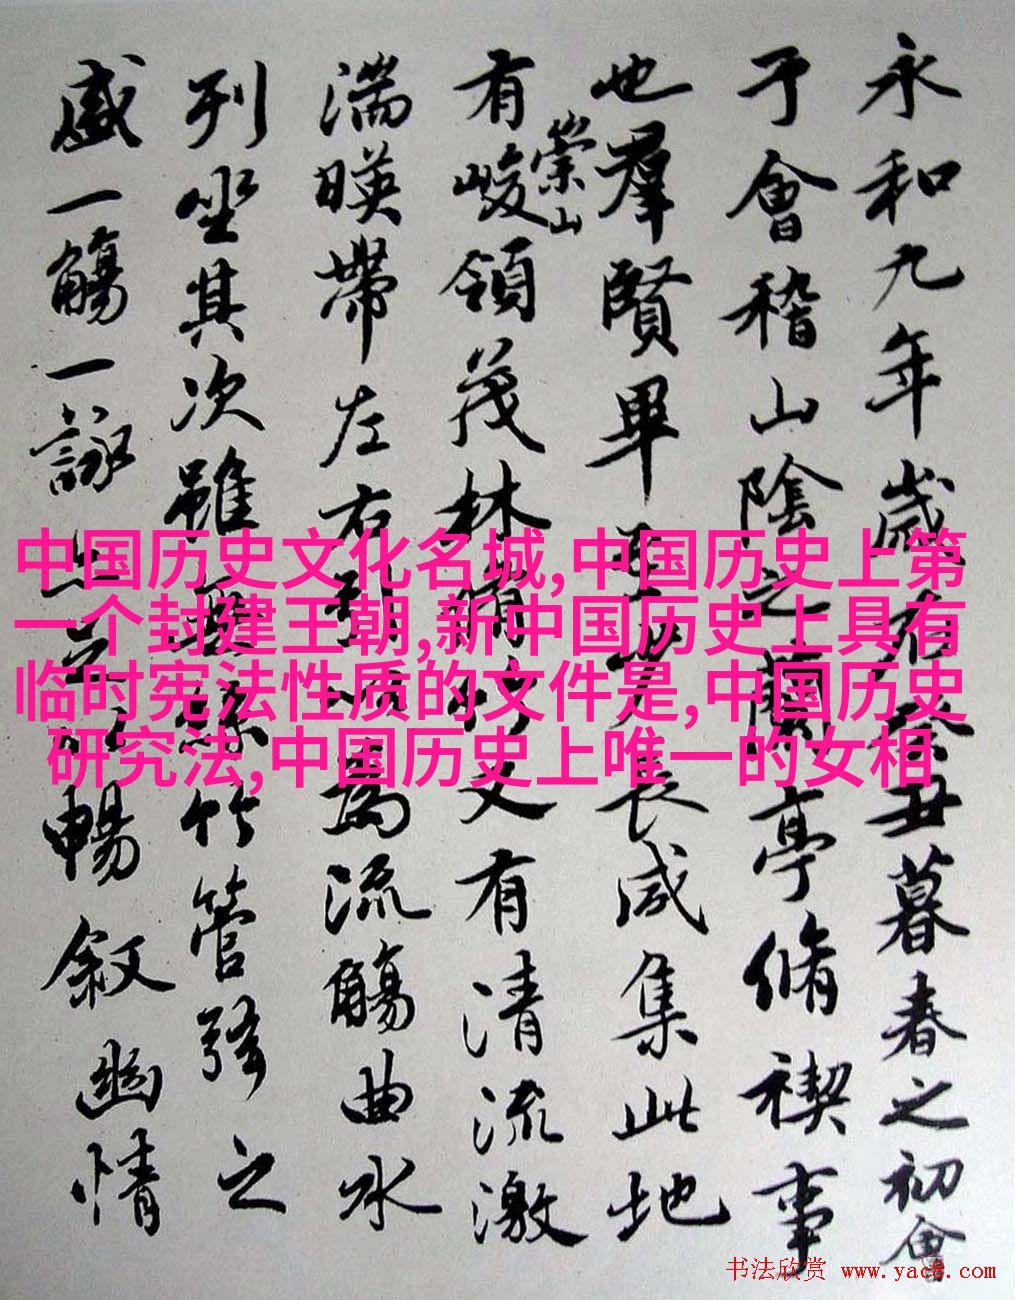 永和九年歲在癸丑暮春之初會
于會稽山陰之蘭亭脩禊事
也羣賢畢至少長咸集此地
有崇山峻領茂林脩竹又有清流激
湍暎帶左右引以為流觴曲水
列坐其次雖無絲竹管弦之
盛一觴一詠亦足以暢敘幽情
中国历史文化名城,中国历史上第
一个封建王朝,新中国历史上具有
临时宪法性质的文件是,中国历史
研究法,中国历史上唯一的女相
书法欣赏 www.yac8.com